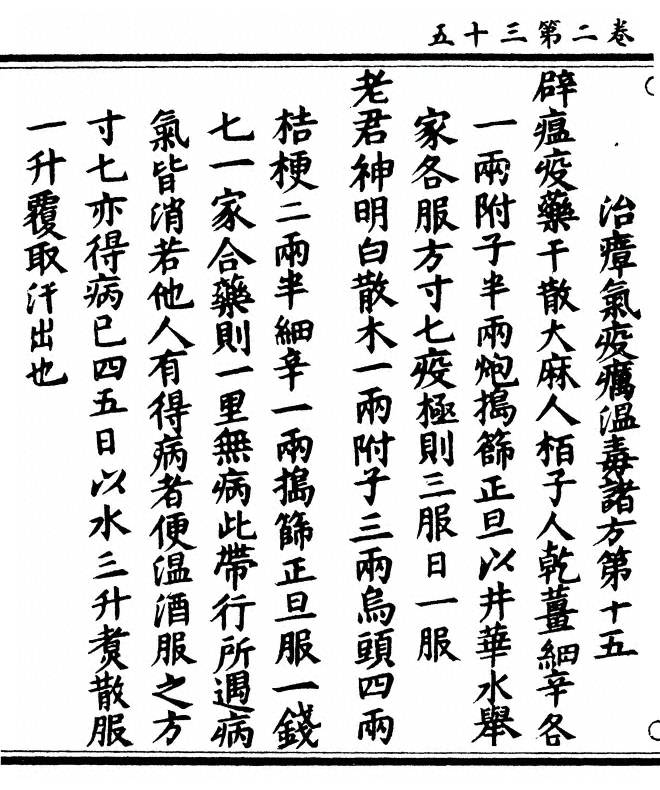 五十三第二卷
治瘴氣疫癘温毒諸方第十五
辟瘟疫藥干散大麻人栢子人乾薑細辛各
一兩附子半兩炮搗篩正旦以井華水舉
家各服方寸匕疫極則三服日一服
老君神明白散朮一兩附子三兩烏頭四兩
桔梗二兩半細辛一兩搗篩正旦服一錢
七一家合藥則一里無病此帶行所遇病
氣皆消若他人有得病者便温酒服之方
寸七亦得病已四五日以水三升煑散服
一升覆取汗出也